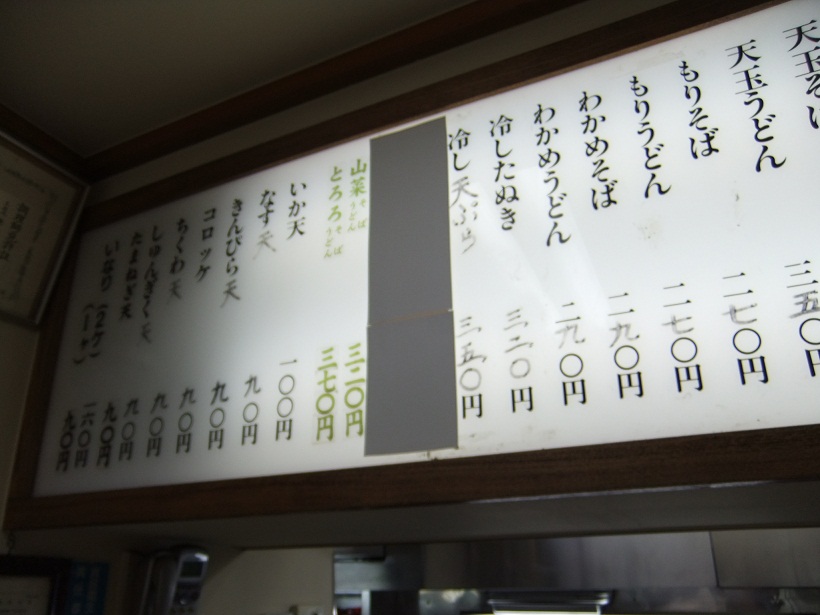 天玉そば 三五〇円
天玉うどん 二七〇円
もりそば 二七〇円
もりうどん 二九〇円
わかめそば 二九〇円
わかめうどん
冷したぬき 三二〇円
冷し天ぷら 三五〇円
山菜そばうどん 三二〇円
とろろそばうどん 三七〇円
いか天 一〇〇円
なす天 九〇円
きんぴら天 九〇円
コロッケ 九〇円
ちくわ天 九〇円
しゅんぎく天 九〇円
たまねぎ天 九〇円
いなり (2ケ) 一六〇円
(一ケ) 九〇円